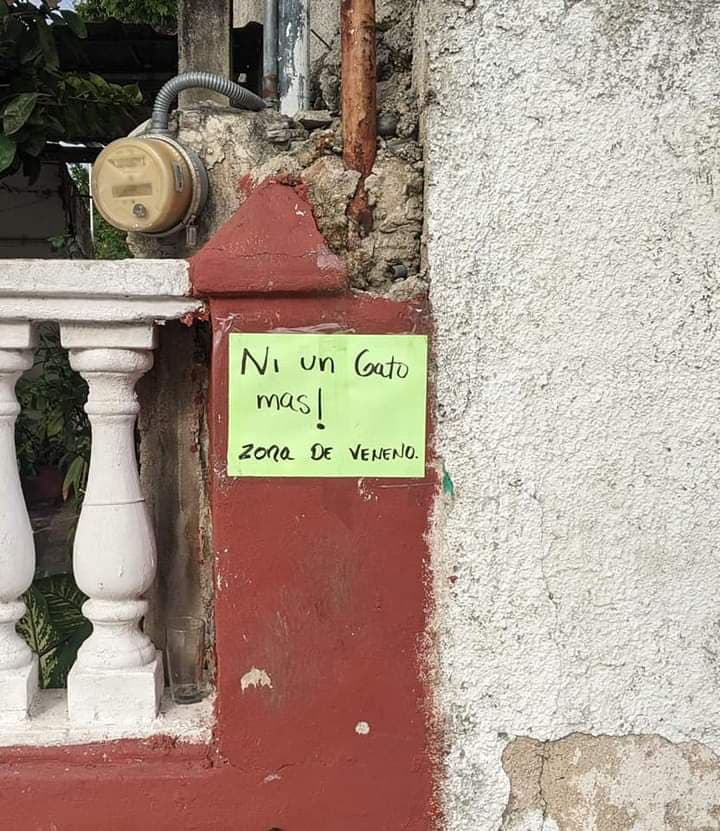 Ni un Gato
mas!
ZONA DE VENENO.